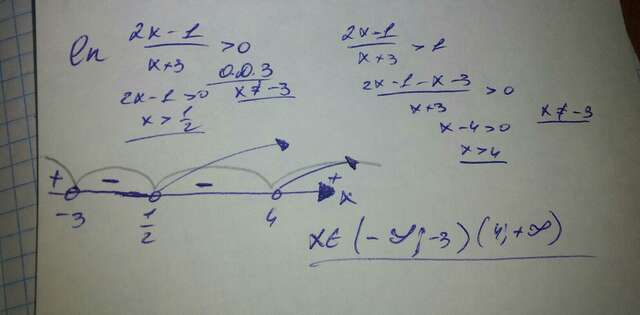 ln (2x-1)/(x+3) > 0
О.О.З
2x-1>0 x≠-3
x > 1/2
(2x-1)/(x+3) > 1
(2x-1-x-3)/(x+3) > 0
x-4>0 x≠-3
x>4
+ - - +
-3 1/2 4 x
x∈(-∞;-3)(4;+∞)